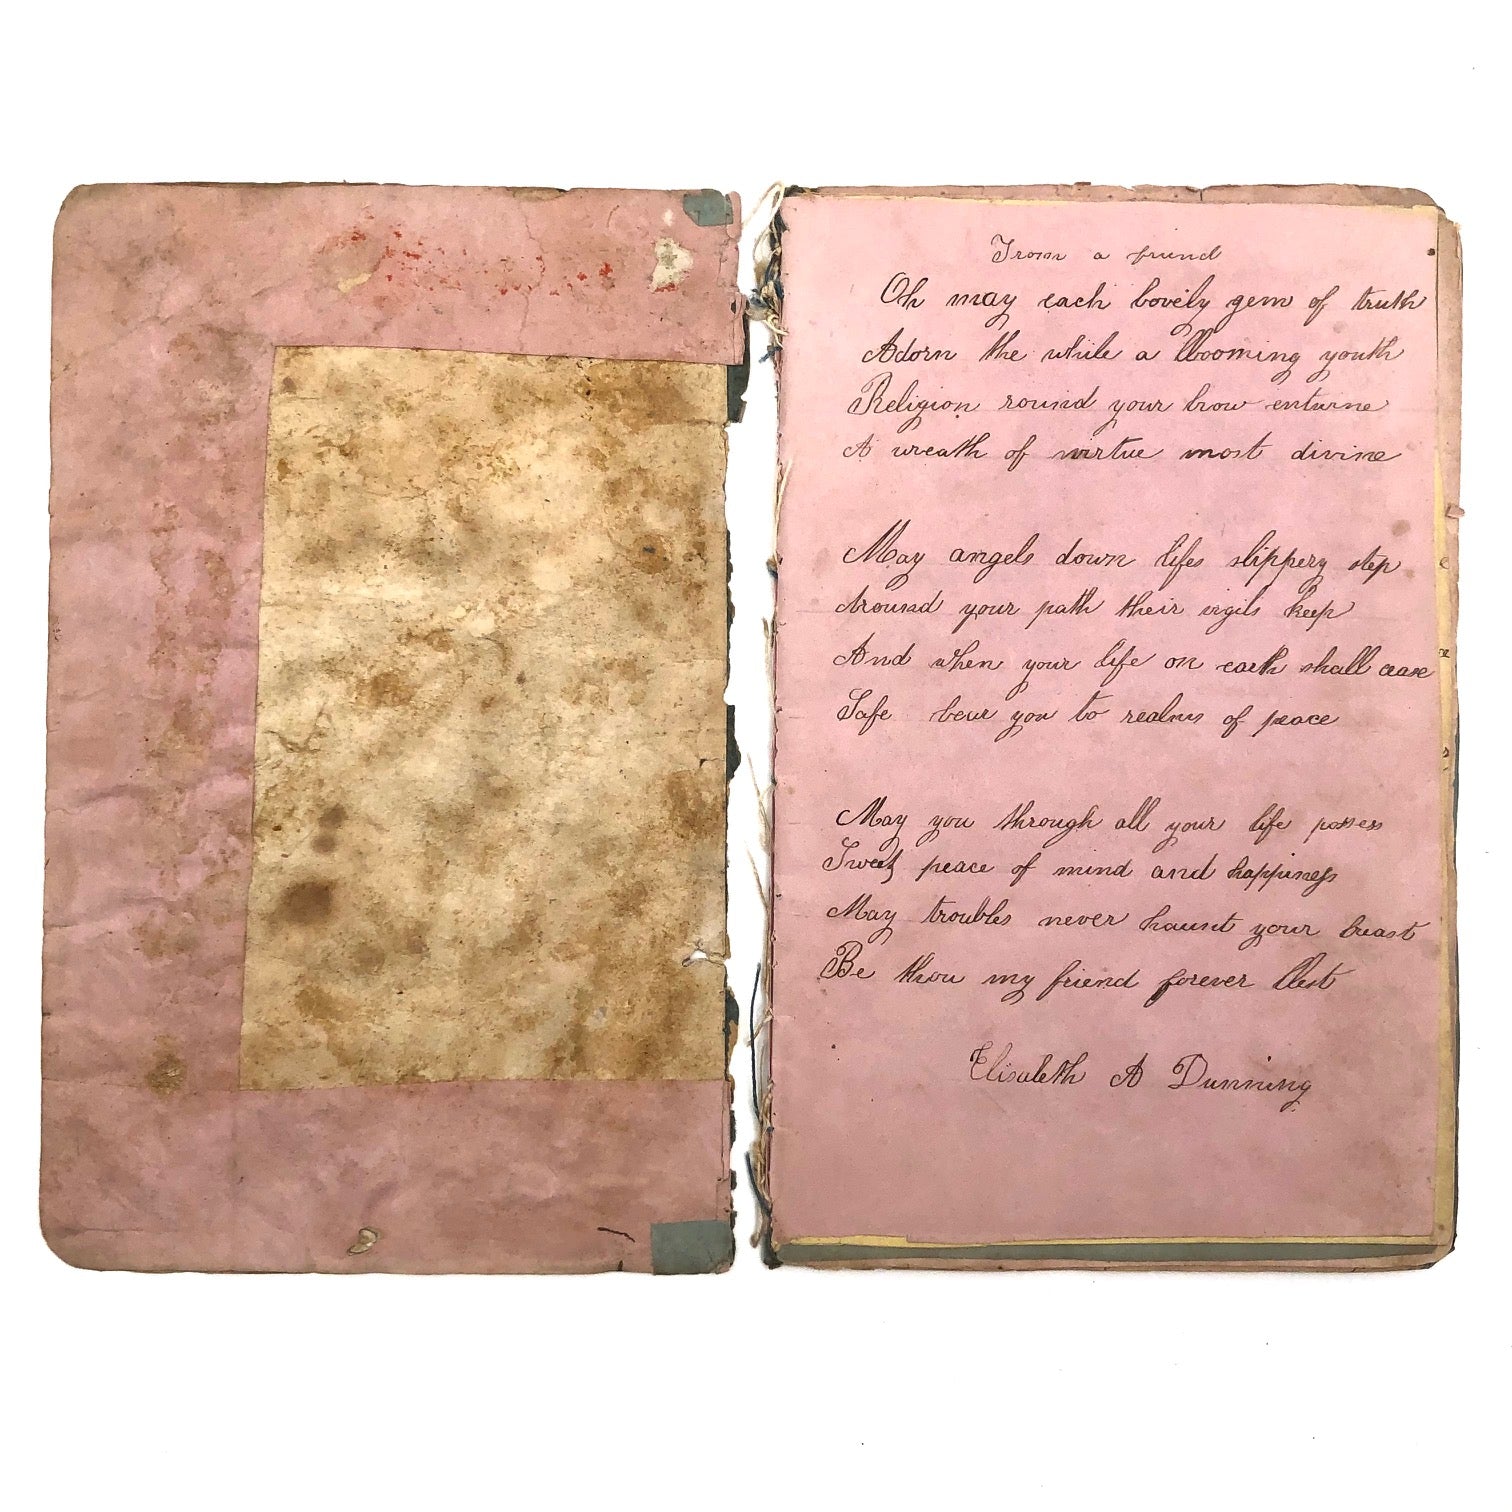 From a friend
Oh may each lovely gem of truth
Adorn the while a blooming youth
Religion round your brow enturne
A wreath of virtue most divine
May angels down lifes slippery step
Around your path their vigils keep
And when your life on earth shall cease
Safe bear you to realms of peace
May you through all your life possess
Sweet peace of mind and happiness
May troubles never haunt your breast
Be thou my friend forever blest
Elisabeth A Dunning